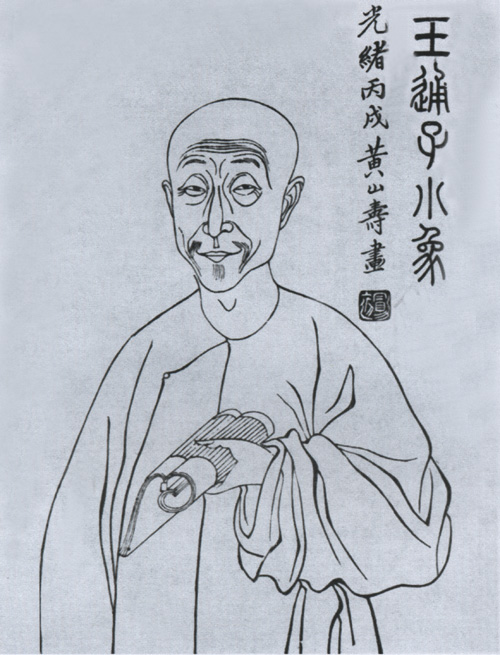 王子小象
光緒丙戌黃山壽畫